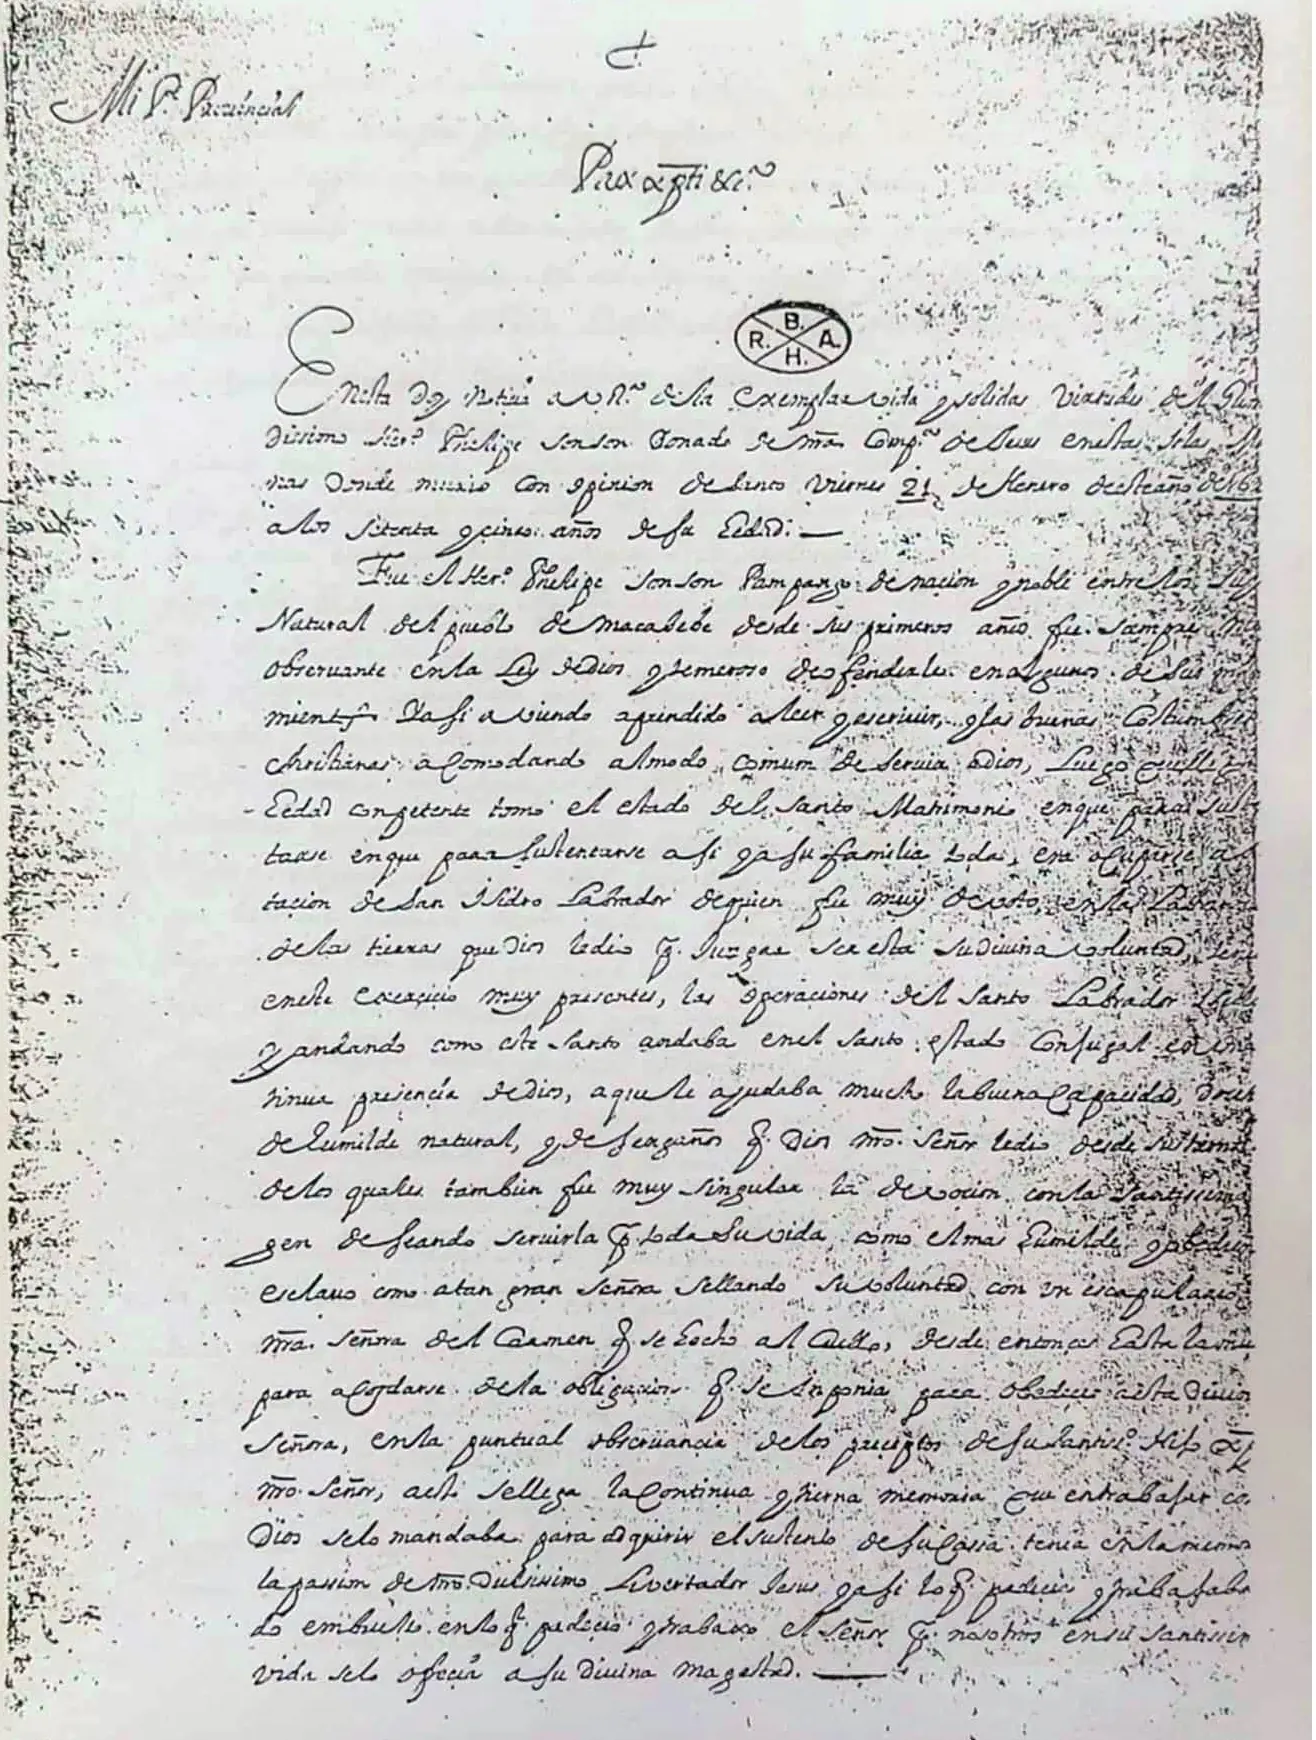 Mi P.e Provincial
Pax Xpti &c.a
B.
R. A.
H.
En esta doy noticia a V R.a de la exemplar vida y solidas virtudes del
dissimo Her.o Phelipe sonson Donado de nra Comp.a de Jesus en estas Islas
nas donde murio con opinion de santo viernes 21 de Henero de este año de
a los setenta y cinco años de su Eedad. —
Fue el Her.o Phelipe sonson Pampango de nacion y noble entre los
Natural del pueblo de Macabebe desde sus primeros años fue siempre
observante en la Ley de Dios y temeroso de ofenderle en alguno de sus
mientos Y asi aviendo aprendido a leer y escrivir, y las buenas Costumbres
christianas acomodando al modo comum de servir a Dios, Luego que llego
Eedad competente tomo el estado del santo Matrimonio en que para
tarse en que para sustentarse a si y a su familia toda, era ocuparse a
tacion de San Isidro Labrador de quien fue muy devoto, en la
de las tierras que Dios le dio p. Juzgar ser esta su divina voluntad,
en este exerçicio muy presentes, las operaciones del santo Labrador
y andando como este santo andaba en el santo estado Conjugal
tinua presencia de Dios, a que le ayudaba mucho la buena Capacidad,
de humilde natural, y de sengaños q. Dios nro. Señor le dio desde su
de los quales tambien fue muy singular la devocion con la santissima
gen deseando servirla p toda su vida como el mas humilde y
esclavo como a tan gran Señora sellando su voluntad con un escapulario
nra. señora del Carmen q se hecho al Cuello, desde entonces hasta la
para acordarse de la obligacion q. se inponia para obedecer a esta Divina
señora, en la puntual observancia de los preceptos de su santiss.o Hijo
nro. Señor, a esto se llega la Continua y tierna memoria que en trabajar
Dios se lo mandaba para adquirir el sustento de su Cassa tenia en la
la passion de nro. Dulcissimo Livertador Jesus y asi lo q. padecia y trabajaba
do embuelto en lo q. padecio y trabaxo el Señor p. nosotros en su santissima
vida se lo ofrecia a su Divina Magestad. —